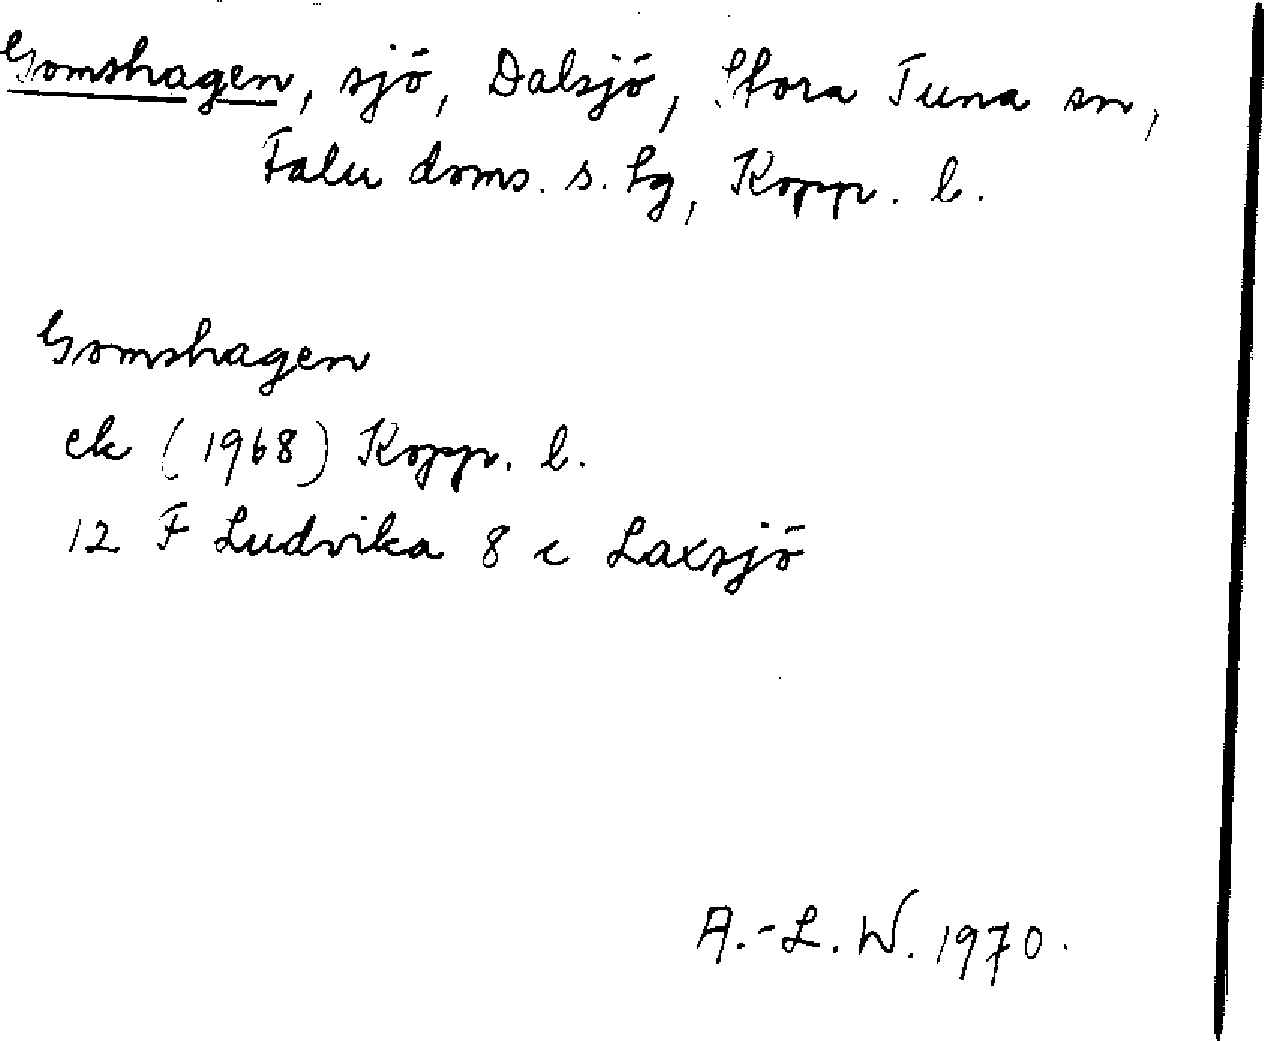 Gomshagen, sjö, Dalsjö, Stora Tuna sn,
Falu doms. s. tg, Kopp. l.
Gomshagen
ek (1968) Kopp. l.
12 F Ludvika 8 c Laxsjö
A.-L. W. 1970.